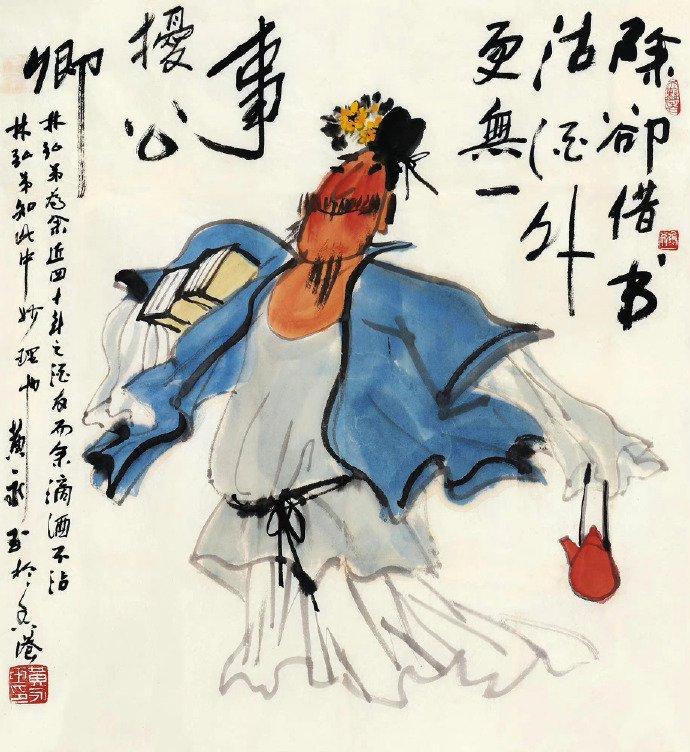 除卻借书
沽酒外
更無一
事
擾公
卿
林弘弟为余近四十年之酒友而余滴酒不沾
林弘弟知此中妙理也 黄永玉於香港